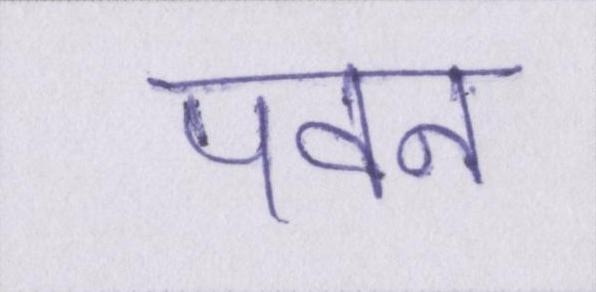 पवन